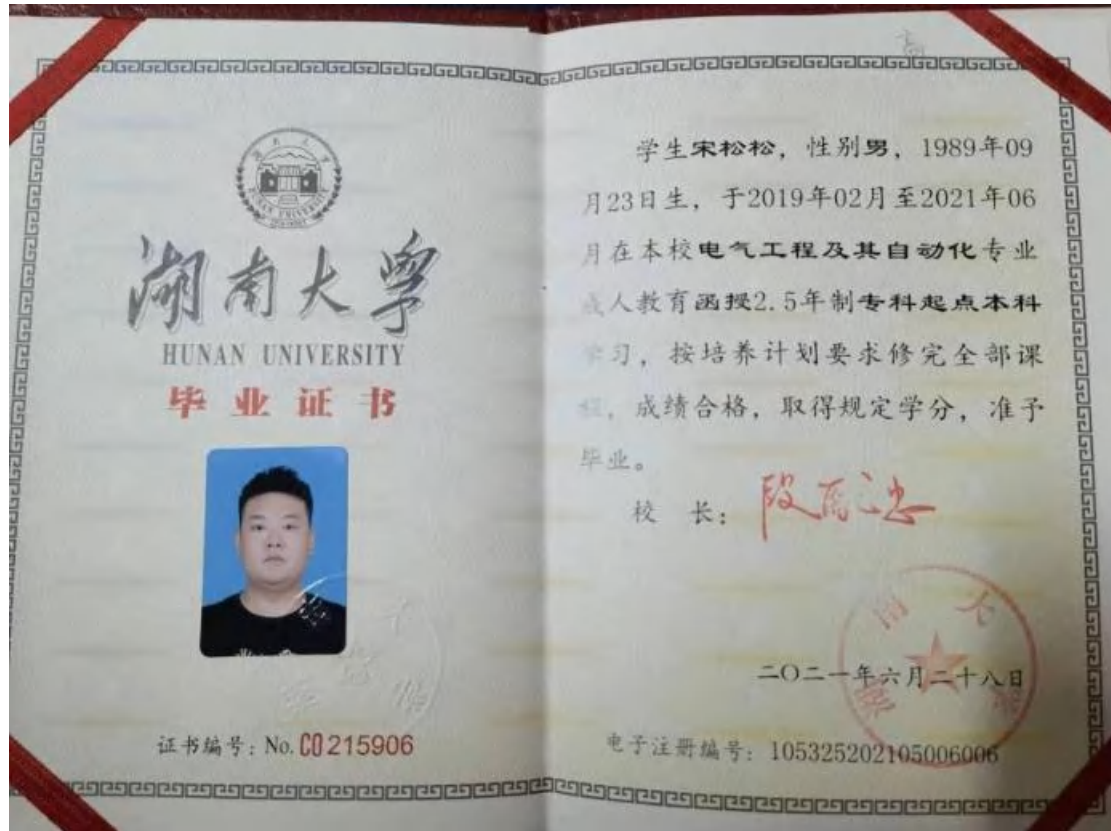 湖南大学
HUNAN UNIVERSITY
湖南大学
HUNAN UNIVERSITY
毕业证书
证书编号：No. C0215906
学生宋松松，性别男，1989年09
月23日生，于2019年02月至2021年06
月在本校电气工程及其自动化专业
成人教育函授2.5年制专科起点本科
学习，按培养计划要求修完全部课
程，成绩合格，取得规定学分，准予
毕业。
校 长：段献忠
湖南大学
二〇二一年六月二十八日
电子注册编号：105325202105006006